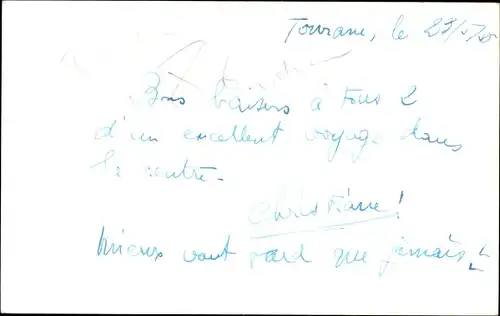 Tourane, le 29/5/50
Bons baisers à tous 2
d'un excellent voyage dans
le centre -
Christiane !
Mieux vaut tard que jamais !